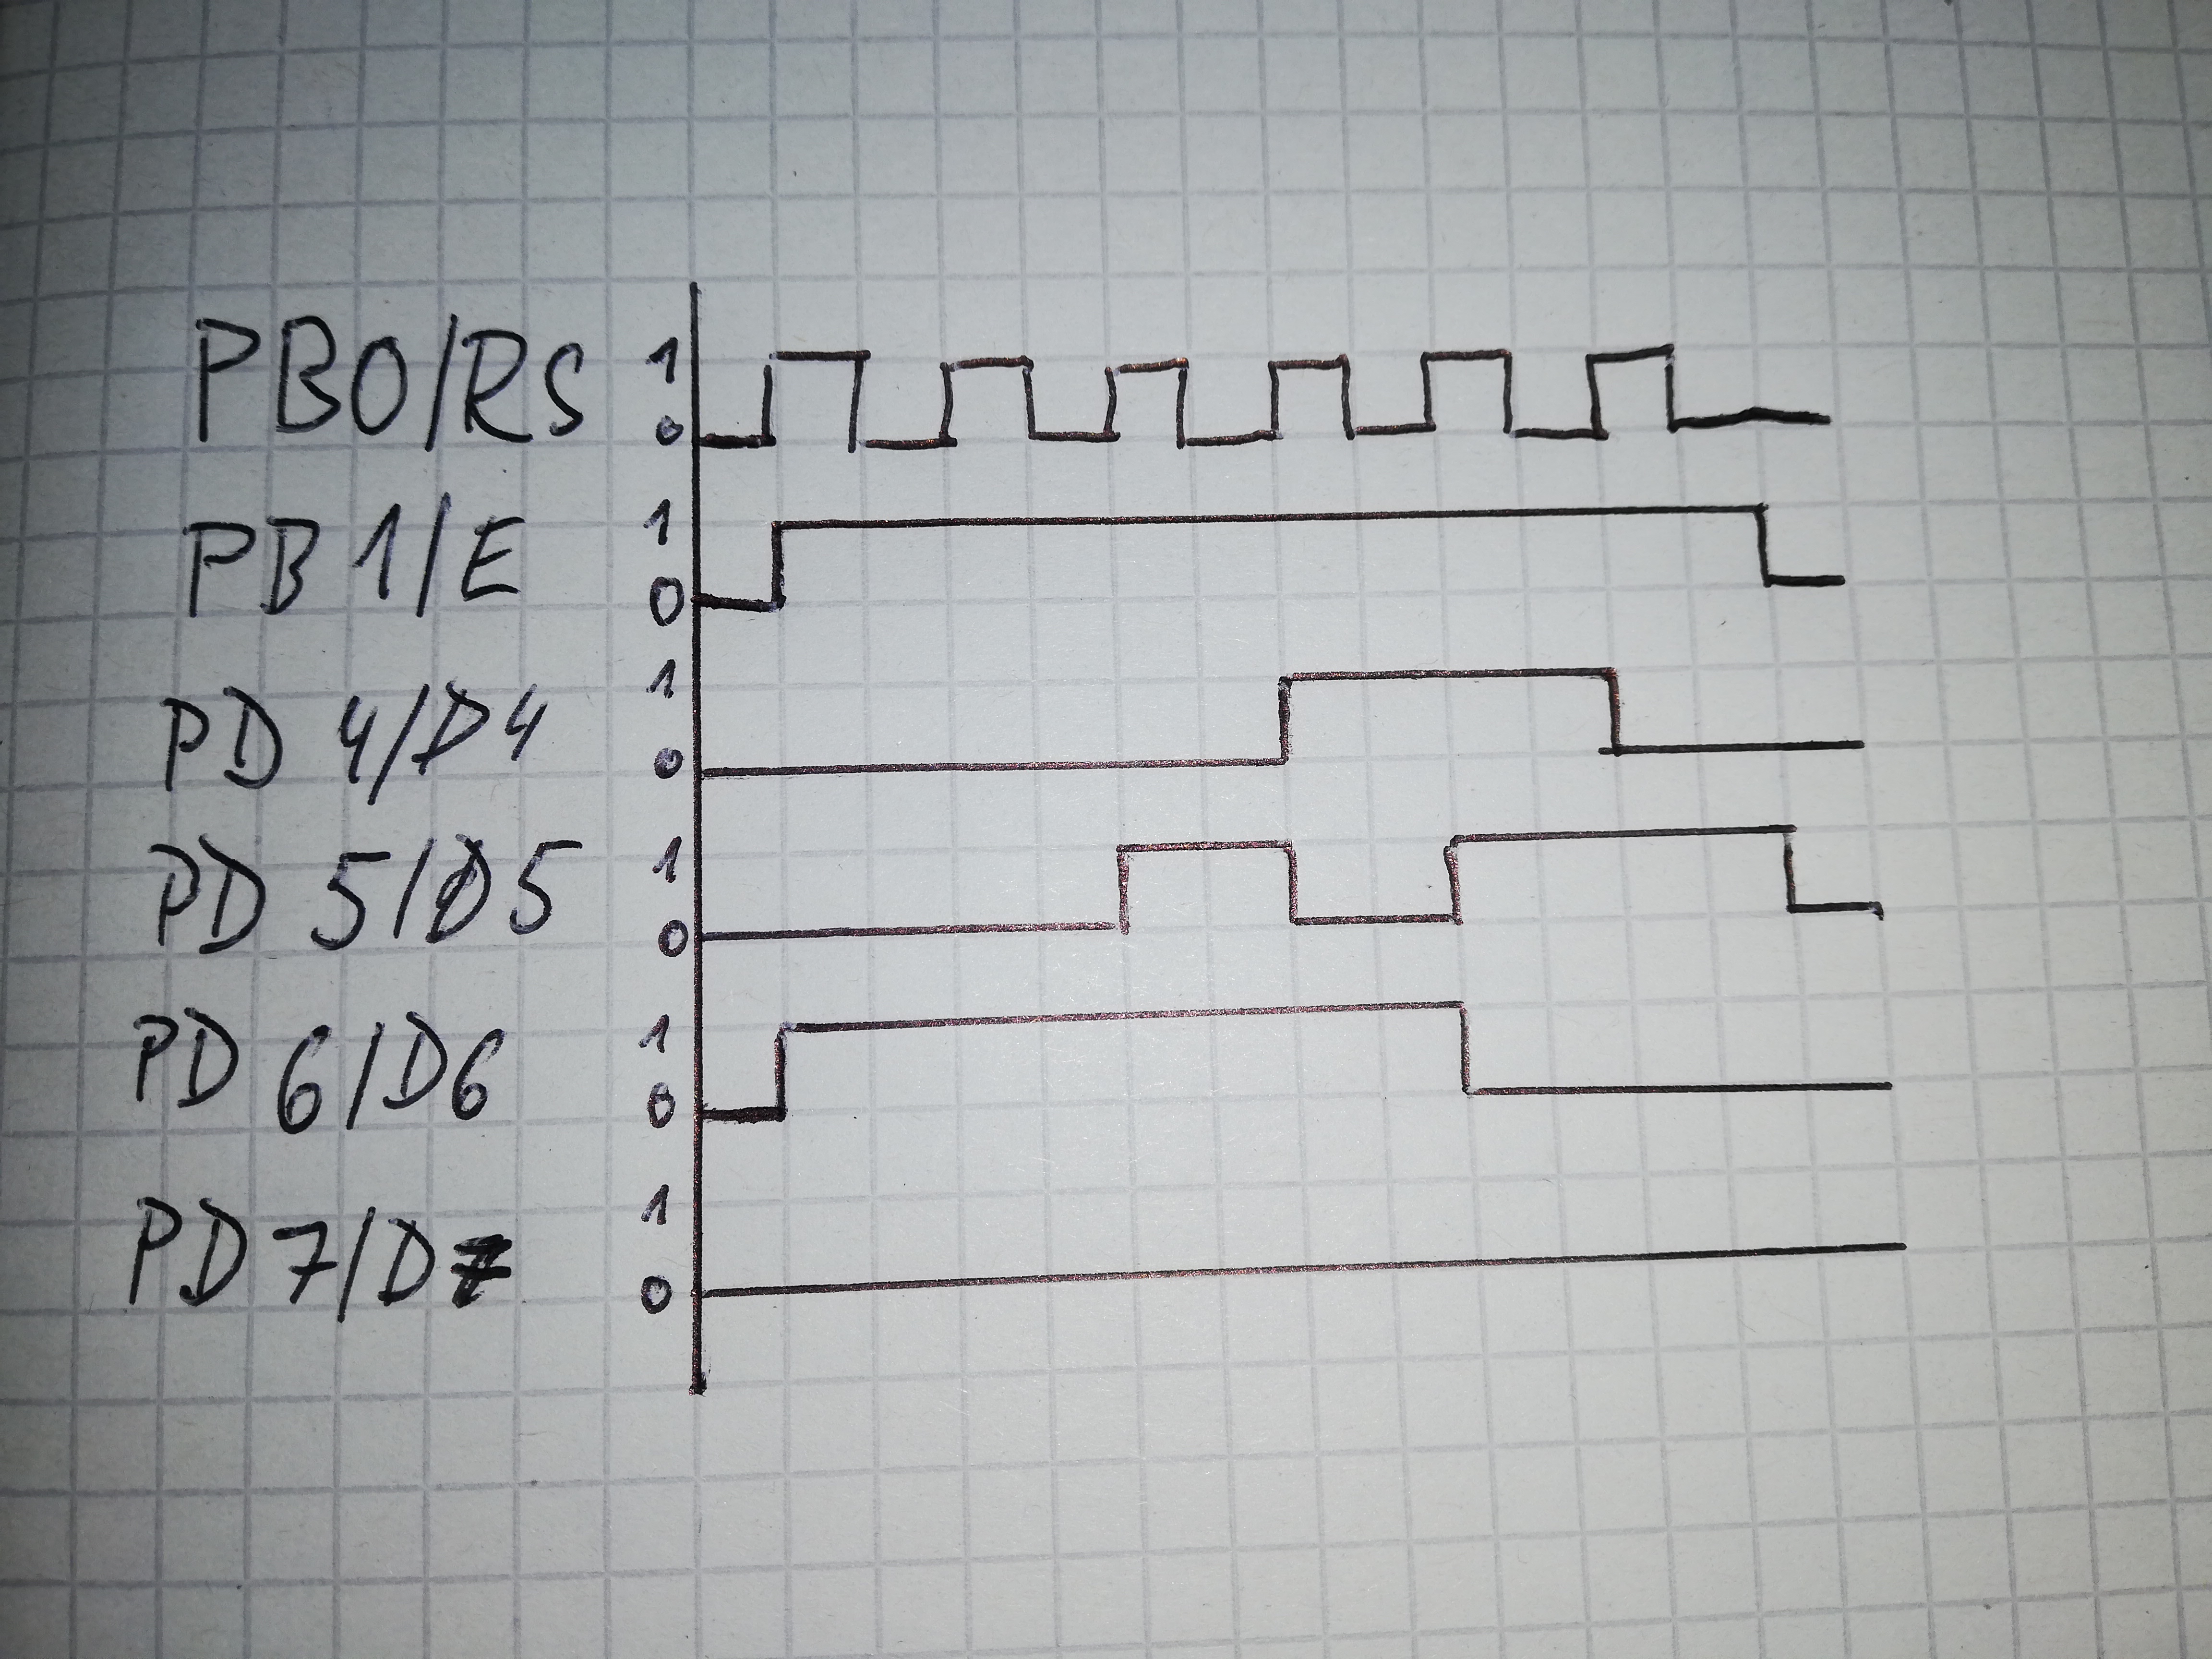 PB0/RS 1
0
PB1/E 1
0
PD4/D4 1
0
PD5/D5 1
0
PD6/D6 1
0
PD7/D7 1
0